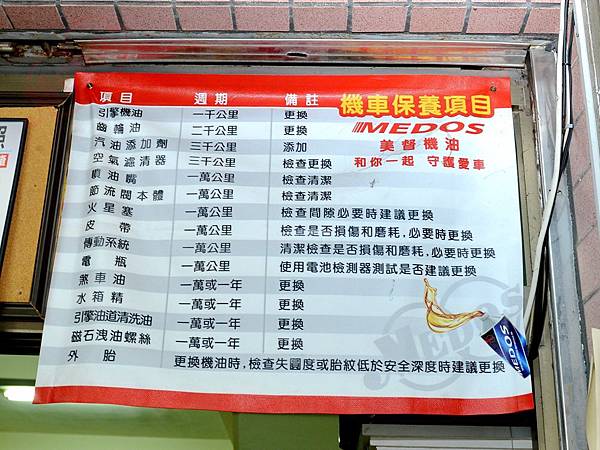 項目 週期 備註
機車保養項目
MEDOS
美督機油
和你一起 守護愛車
引擎機油 一千公里 更換
齒輪油 二千公里 更換
汽油添加劑 三千公里 添加
空氣濾清器 三千公里 檢查更換
噴油嘴 一萬公里 檢查清潔
節流閥本體 一萬公里 檢查清潔
火星塞 一萬公里 檢查間隙必要時建議更換
皮帶 一萬公里 檢查是否損傷和磨耗,必要時更換
傳動系統 一萬公里 清潔檢查是否損傷和磨耗,必要時更換
電瓶 一萬公里 使用電池檢測器測試是否建議更換
煞車油 一萬或一年 更換
水箱精 一萬或一年 更換
引擎油道清洗油 一萬或一年 更換
磁石洩油螺絲 一萬或一年 更換
外胎 更換機油時,檢查失圓度或胎紋低於安全深度時建議更換
MEDOS
MEDOS